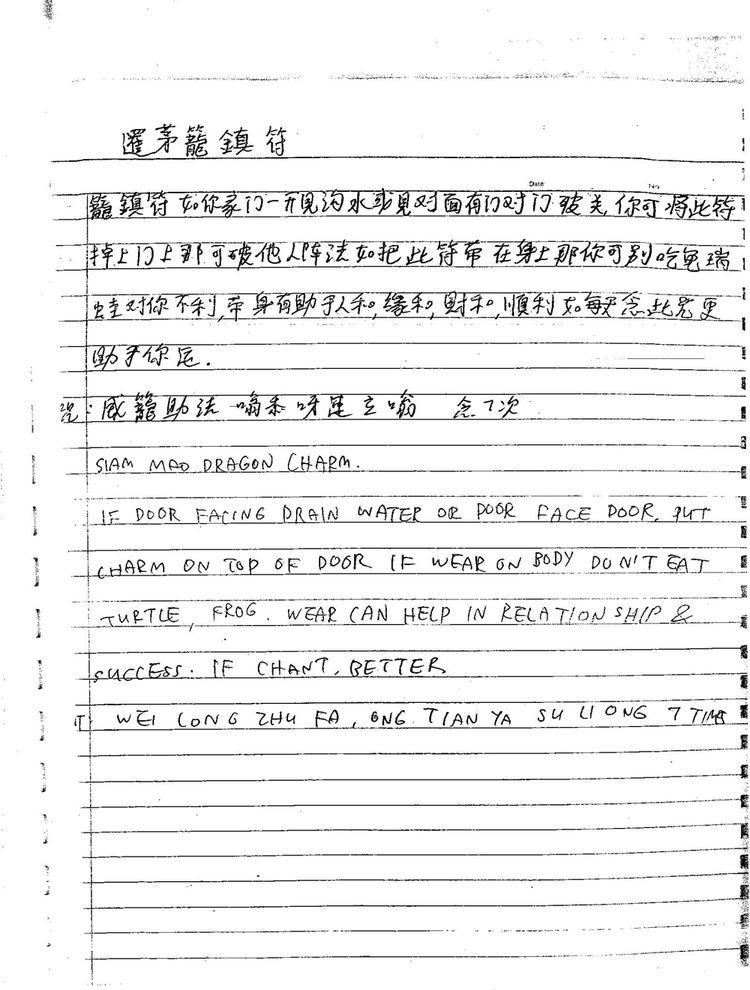 暹茅籠鎮符
Date No
籠鎮符如你家门一开见沟水或见对面有门对门破关,你可将此符
掉上门上那可破他人阵法如把此符带在身上那你可别吃龟瑞
蛙对你不利,带身有助于人和,缘和,财和,順利如每天念此咒更
助于你运.
咒:威籠助法 嗡 呀 立嗡 念7次
SIAM MAO DRAGON CHARM.
IF DOOR FACING DRAIN WATER OR DOOR FACE DOOR, PUT
CHARM ON TOP OF DOOR IF WEAR ON BODY DON'T EAT
TURTLE, FROG. WEAR CAN HELP IN RELATIONSHIP &
SUCCESS. IF CHANT, BETTER
WEI LONG ZHU FA, ONG TIAN YA SU LI ONG 7 TIMES